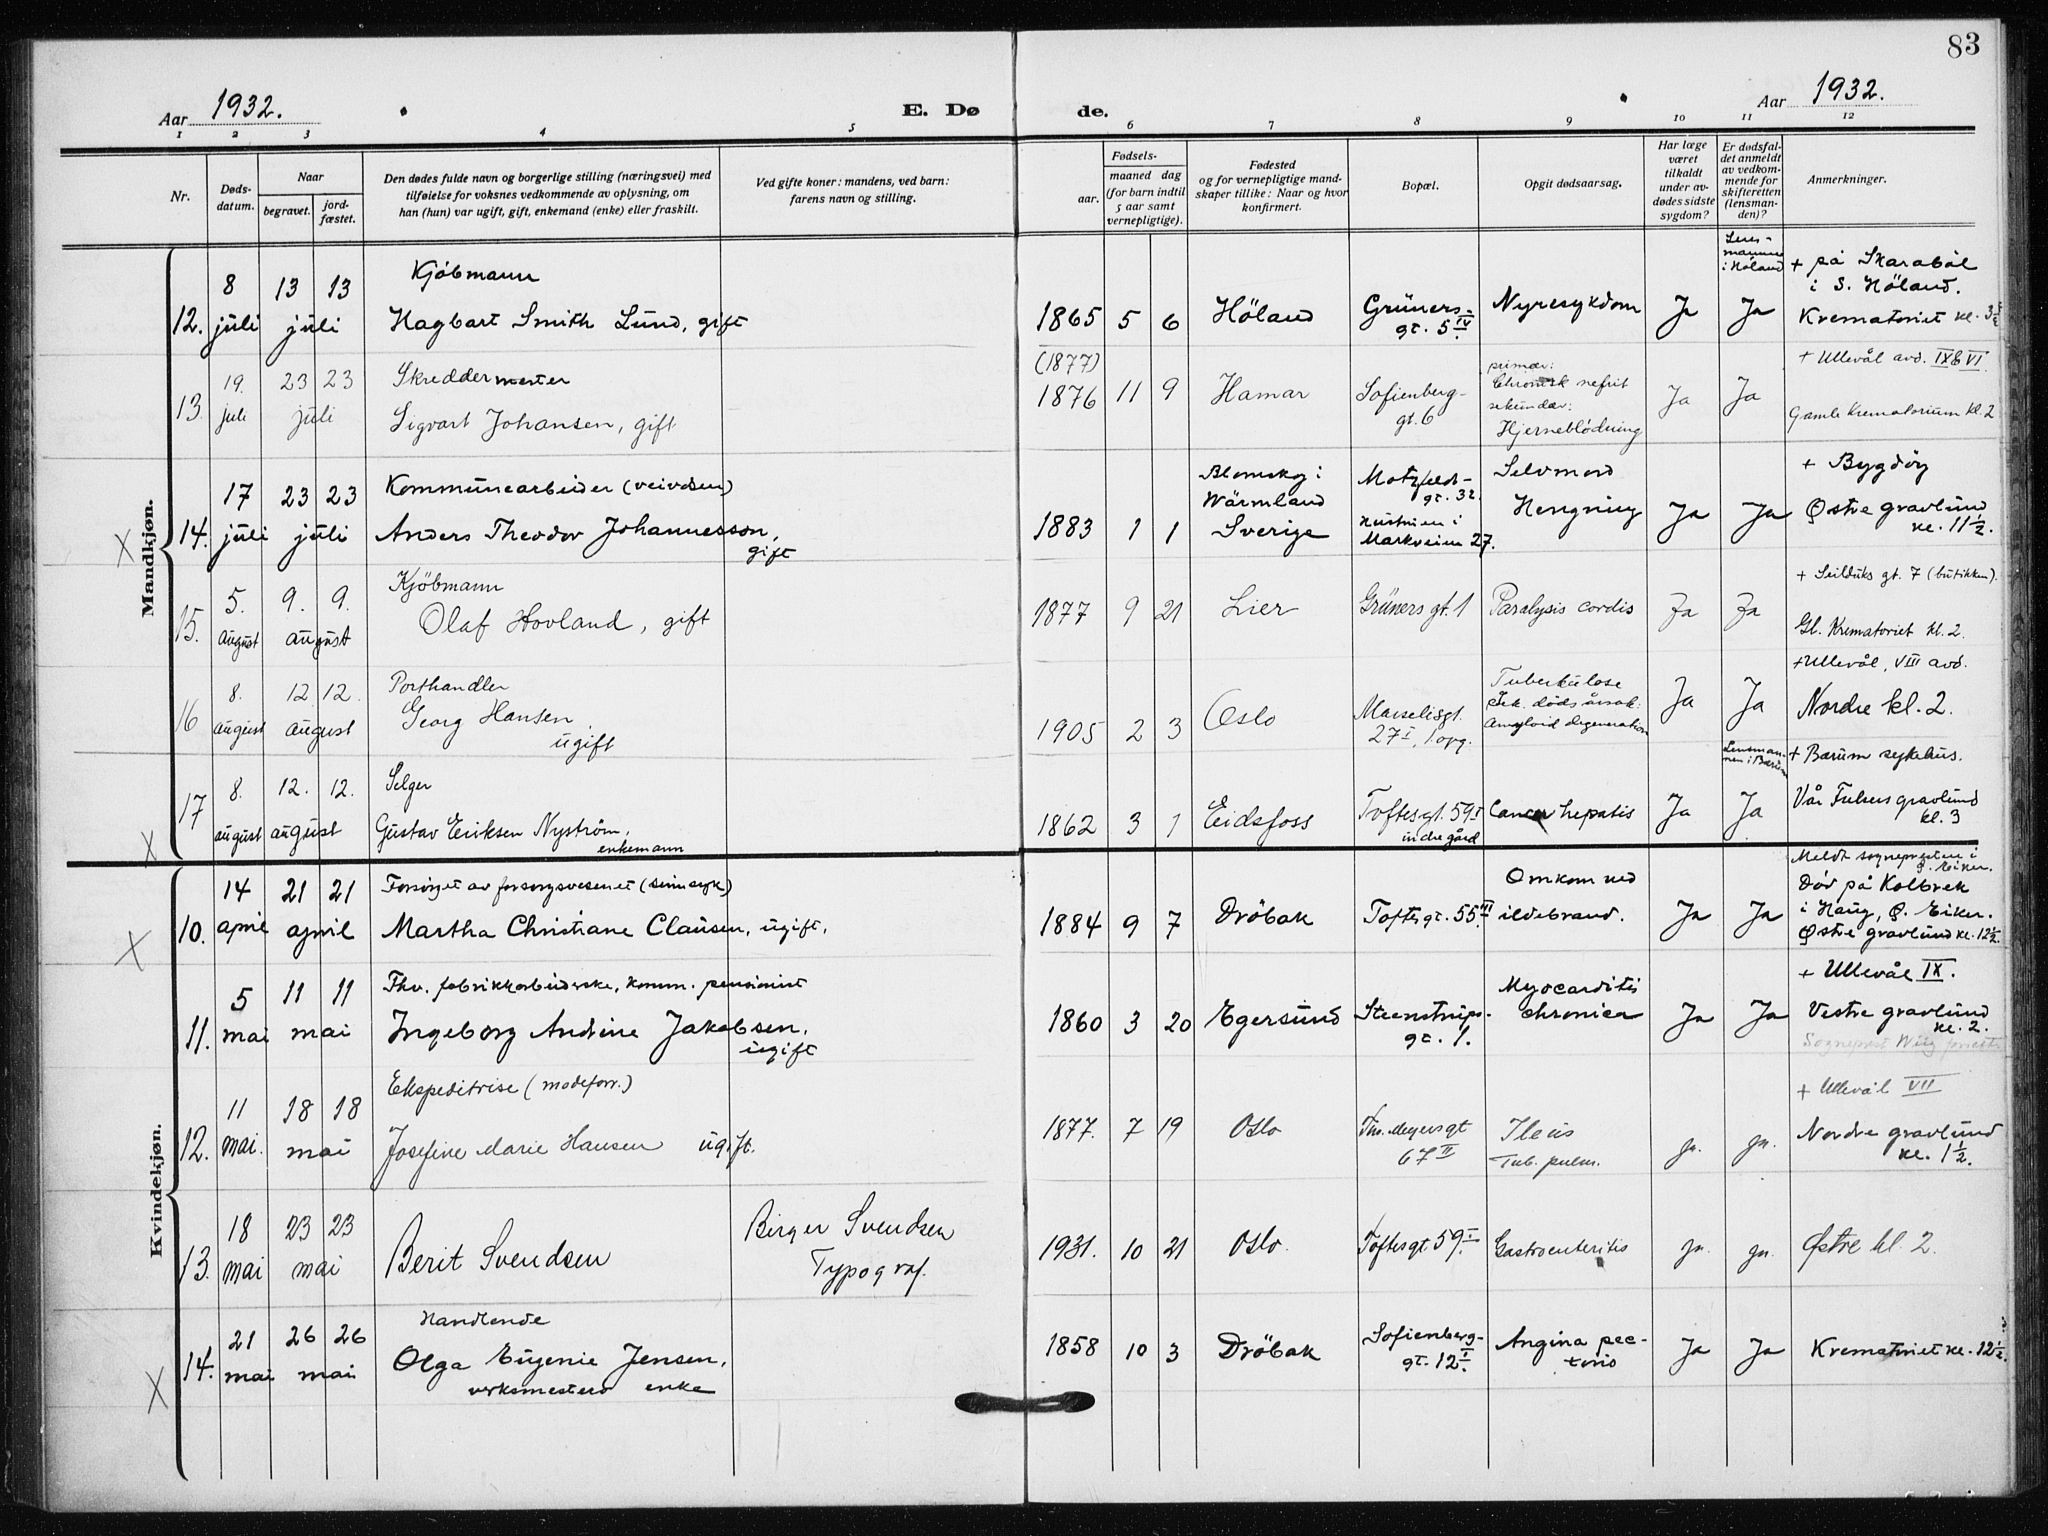 83
Aar 1932. E. Døde. Aar 1932.
1 2 3 4 5 6 7 8 9 10 11 12
Nr.
Døds-
datum.
Naar
begravet.
jord-
fæstet.
Den dødes fulde navn og borgerlige stilling (næringsvei) med
tilføielse for voksnes vedkommende av oplysning, om
han (hun) var ugift, gift, enkemand (enke) eller fraskilt.
Ved gifte koner: mandens, ved barn:
farens navn og stilling.
Fødsels-
aar.
maaned dag
(for barn indtil
5 aar samt
vernepligtige).
Fødested
og for vernepligtige mand-
skaper tillike: Naar og hvor
konfirmert.
Bopæl.
Opgit dødsaarsag.
Har læge
været
tilkaldt
under av-
dødes sidste
sygdom?
Er dødsfal-
det anmeldt
av vedkom-
mende for
skifteretten
(lensman-
den)?
Anmerkninger.
Mandkjøn.
12. 8 juli 13 13 juli
Kjöbmann
Hagbart Smith Lund, gift
1865 5 6 Höland
Grüners-
gt. 5 IV
Nyresykdom
Ja
Lens-
mannen
i Höland
Ja
+ på Skaraböl
i S. Höland.
Krematoriet kl. 3½
13. 19. juli 23 23 juli
Skreddermester
Sigvart Johansen, gift
(1877)
1876 11 9 Hamar
Sofienberg-
gt. 6
primær:
Chronisk nefrit
sekundær:
Hjerneblödning
Ja Ja
+ Ullevål avd. IX & VI
Gamle Krematorium kl. 2
14. 17 juli 23 23 juli
Kommunearbeider (veivdsen)
Anders Theodor Johannesson,
gift
1883 1 1
Blomskog i
Wärmland
Sverige
Motzfeldt-
gt. 32.
Hustruen i
Markveien 27.
Selvmord
Hengning
Ja Ja
+ Bygdöy
Østre gravlund
kl. 11½.
15. 5. august 9. 9. august
Kjöbmann
Olaf Hovland, gift
1877 9 21 Lier Grüners gt. 1 Paralysis cordis Ja Ja
+ Seilduks gt. 7 (butikken).
Gl. Krematoriet kl. 2.
16 8. august 12 12. august
Porthandler
Georg Hansen
ugift
1905 2 3 Oslo
Marselisgt.
27 I, 1. opg.
Tuberkulose
Sek. dödsårsak:
Amyloid degeneration
Ja Ja
+ Ullevål, VIII avd.
Nordre kl. 2.
17 8. august 12. 12. august
Selger
Gustav Eriksen Nyström,
enkemann
1862 3 1 Eidsfoss
Toftesgt. 59 I
indre gård
Cancer hepatis
Ja
Lensman-
nen i Bærum
Ja
+ Bærum sykehus.
Vår Frelsers gravlund
kl. 3
Kvindekjøn.
10. 14 april 21 21 april
Forsörget av forsorgsvesenet (sinnsyk)
Martha Christiane Clausen, ugift.
1884 9 7 Dröbak Toftesgt. 55 III
Omkom ved
ildebrand.
Ja Ja
Meldt sognepresten i
Ø. Eiker.
Död på Kolbrek
i Haug, Ø. Eiker.
Østre gravlund kl. 12½.
11. 5 mai 11 11 mai
Fhv. fabrikkarbeiderske, komm. pensionist
Ingeborg Andrine Jakobsen,
ugift
1860 3 20 Egersund
Steenstrups-
gt. 1.
Myocarditis
chronica
Ja Ja
+ Ullevål IX.
Vestre gravlund
kl. 2.
Sogneprest
12. 11 mai. 18 18 mai
Ekspeditrise (modeforr.)
Josefine Marie Hansen ugift.
1877. 7 19 Oslo
Th. Meyersgt
67 II
Ileus
Tub. pulm.
ja. ja.
+ Ullevål VII
Nordre gravlund
kl. 1½.
13. 18 mai 23 23 mai
Berit Svendsen
Birger Svendsen
Typograf.
1931. 10 21 Oslo. Toftesgt 59 I. Gastroenteritis ja. ja. Østre kl. 2.
14. 21 mai 26 26 mai
Handlende
Olga Eugenie Jensen,
verksmesters enke
1858 10 3 Dröbak
Sofienberg-
gt. 12 I.
Angina pec-
toris
Ja Ja Krematoriet kl. 12½.